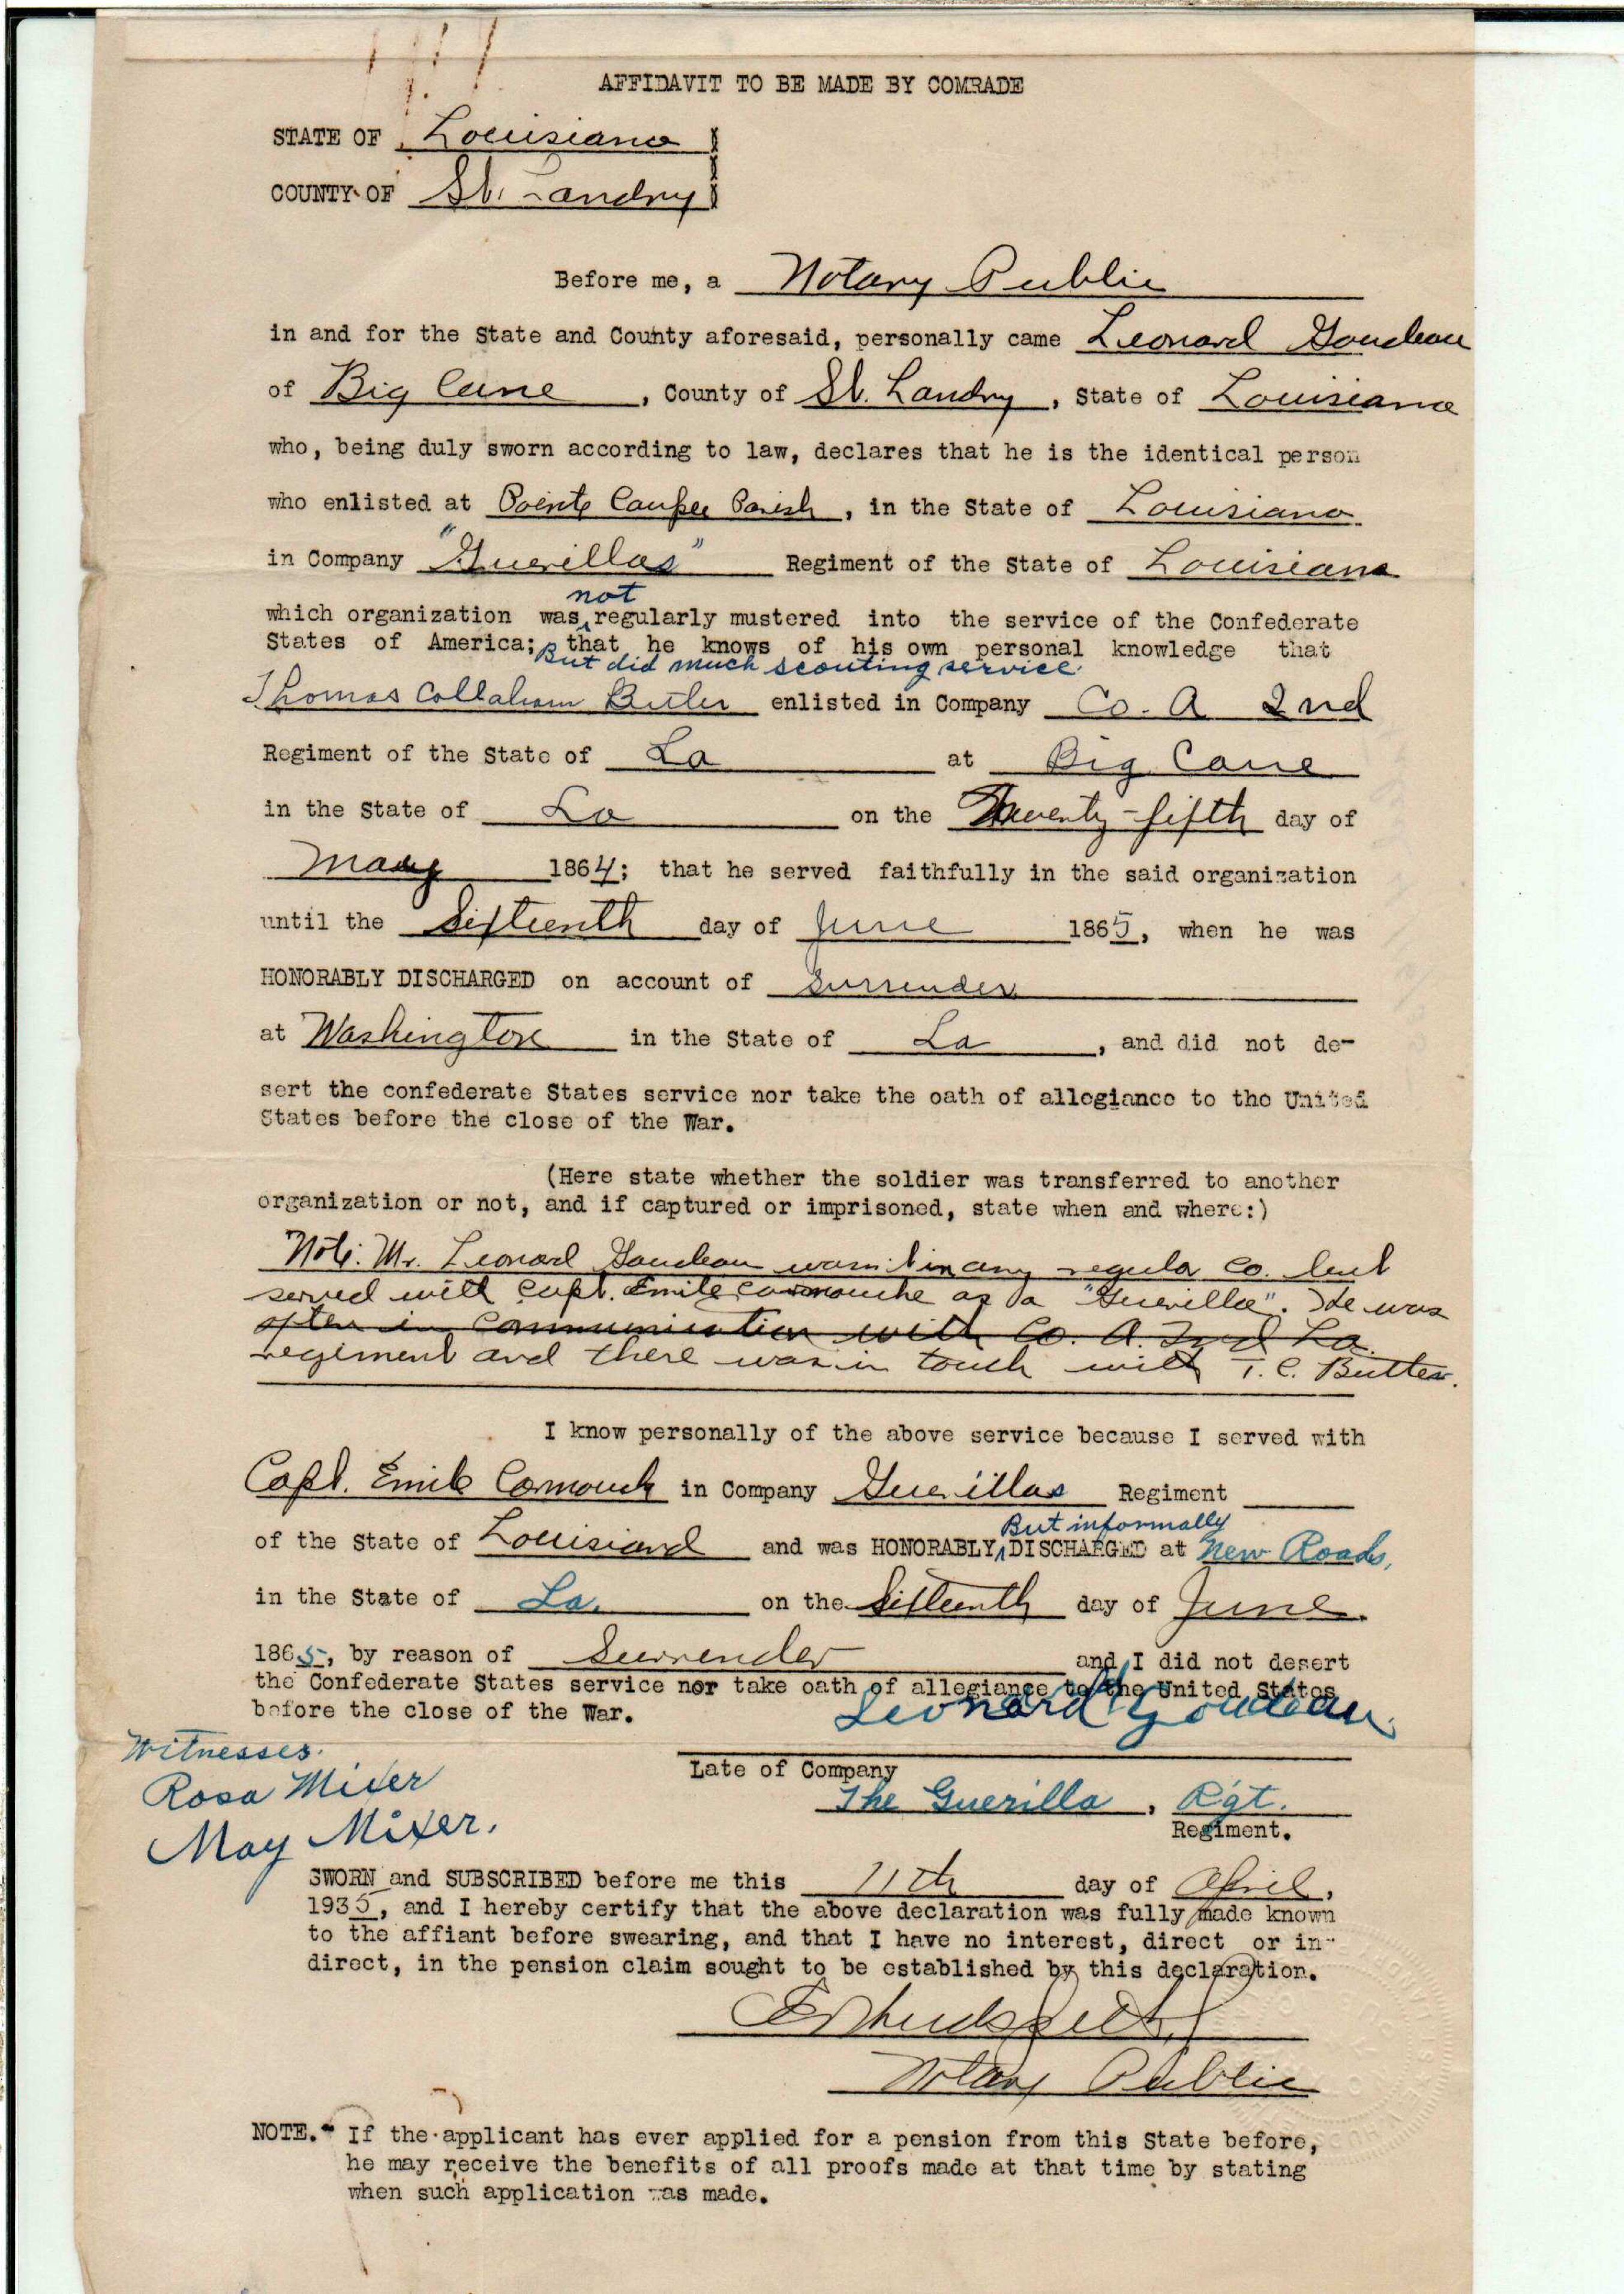 AFFIDAVIT TO BE MADE BY COMRADE
STATE OF Louisiana
COUNTY OF St. Landry
Before me, a Notary Public
in and for the State and County aforesaid, personally came Leonard Goudeau
of Big Cane, County of St. Landry, State of Louisiana
who, being duly sworn according to law, declares that he is the identical person
who enlisted at Pointe Coupee Parish, in the State of Louisiana
in Company "Guerillas" Regiment of the State of Louisiana
not
which organization was regularly mustered into the service of the Confederate
States of America; that he knows of his own personal knowledge that
But did much scouting service.
Thomas Collaham Butler enlisted in Company Co. A 2nd
Regiment of the State of La at Big Cane
in the State of La on the Twenty-fifth day of
May 1864; that he served faithfully in the said organization
until the Sixteenth day of June 1865, when he was
HONORABLY DISCHARGED on account of surrender
at Washington in the State of La, and did not de-
sert the confederate States service nor take the oath of allegiance to the United
States before the close of the War.
(Here state whether the soldier was transferred to another
organization or not, and if captured or imprisoned, state when and where:)
Note: Mr. Leonard Goudeau wasn't in any regular Co. but
served with Capt. Emile Cormouche as a "Guerilla". He was
often in communication with Co. A. 2nd La.
regiment and there was in touch with T. C. Butler.
I know personally of the above service because I served with
Capt. Emile Cormouch in Company Guerillas Regiment
But informally
of the State of Louisiana and was HONORABLY DISCHARGED at New Roads,
in the State of La. on the Sixteenth day of June.
1865, by reason of Surrender and I did not desert
the Confederate States service nor take oath of allegiance to the United States
before the close of the War.
Leonard Goudeau
Witnesses.
Rosa Mixer
May Mixer.
Late of Company
The Guerilla, Rgt.
Regiment.
SWORN and SUBSCRIBED before me this 11th day of April,
1935, and I hereby certify that the above declaration was fully made known
to the affiant before swearing, and that I have no interest, direct or in-
direct, in the pension claim sought to be established by this declaration.
Notary Public
NOTE.- If the applicant has ever applied for a pension from this State before,
he may receive the benefits of all proofs made at that time by stating
when such application was made.